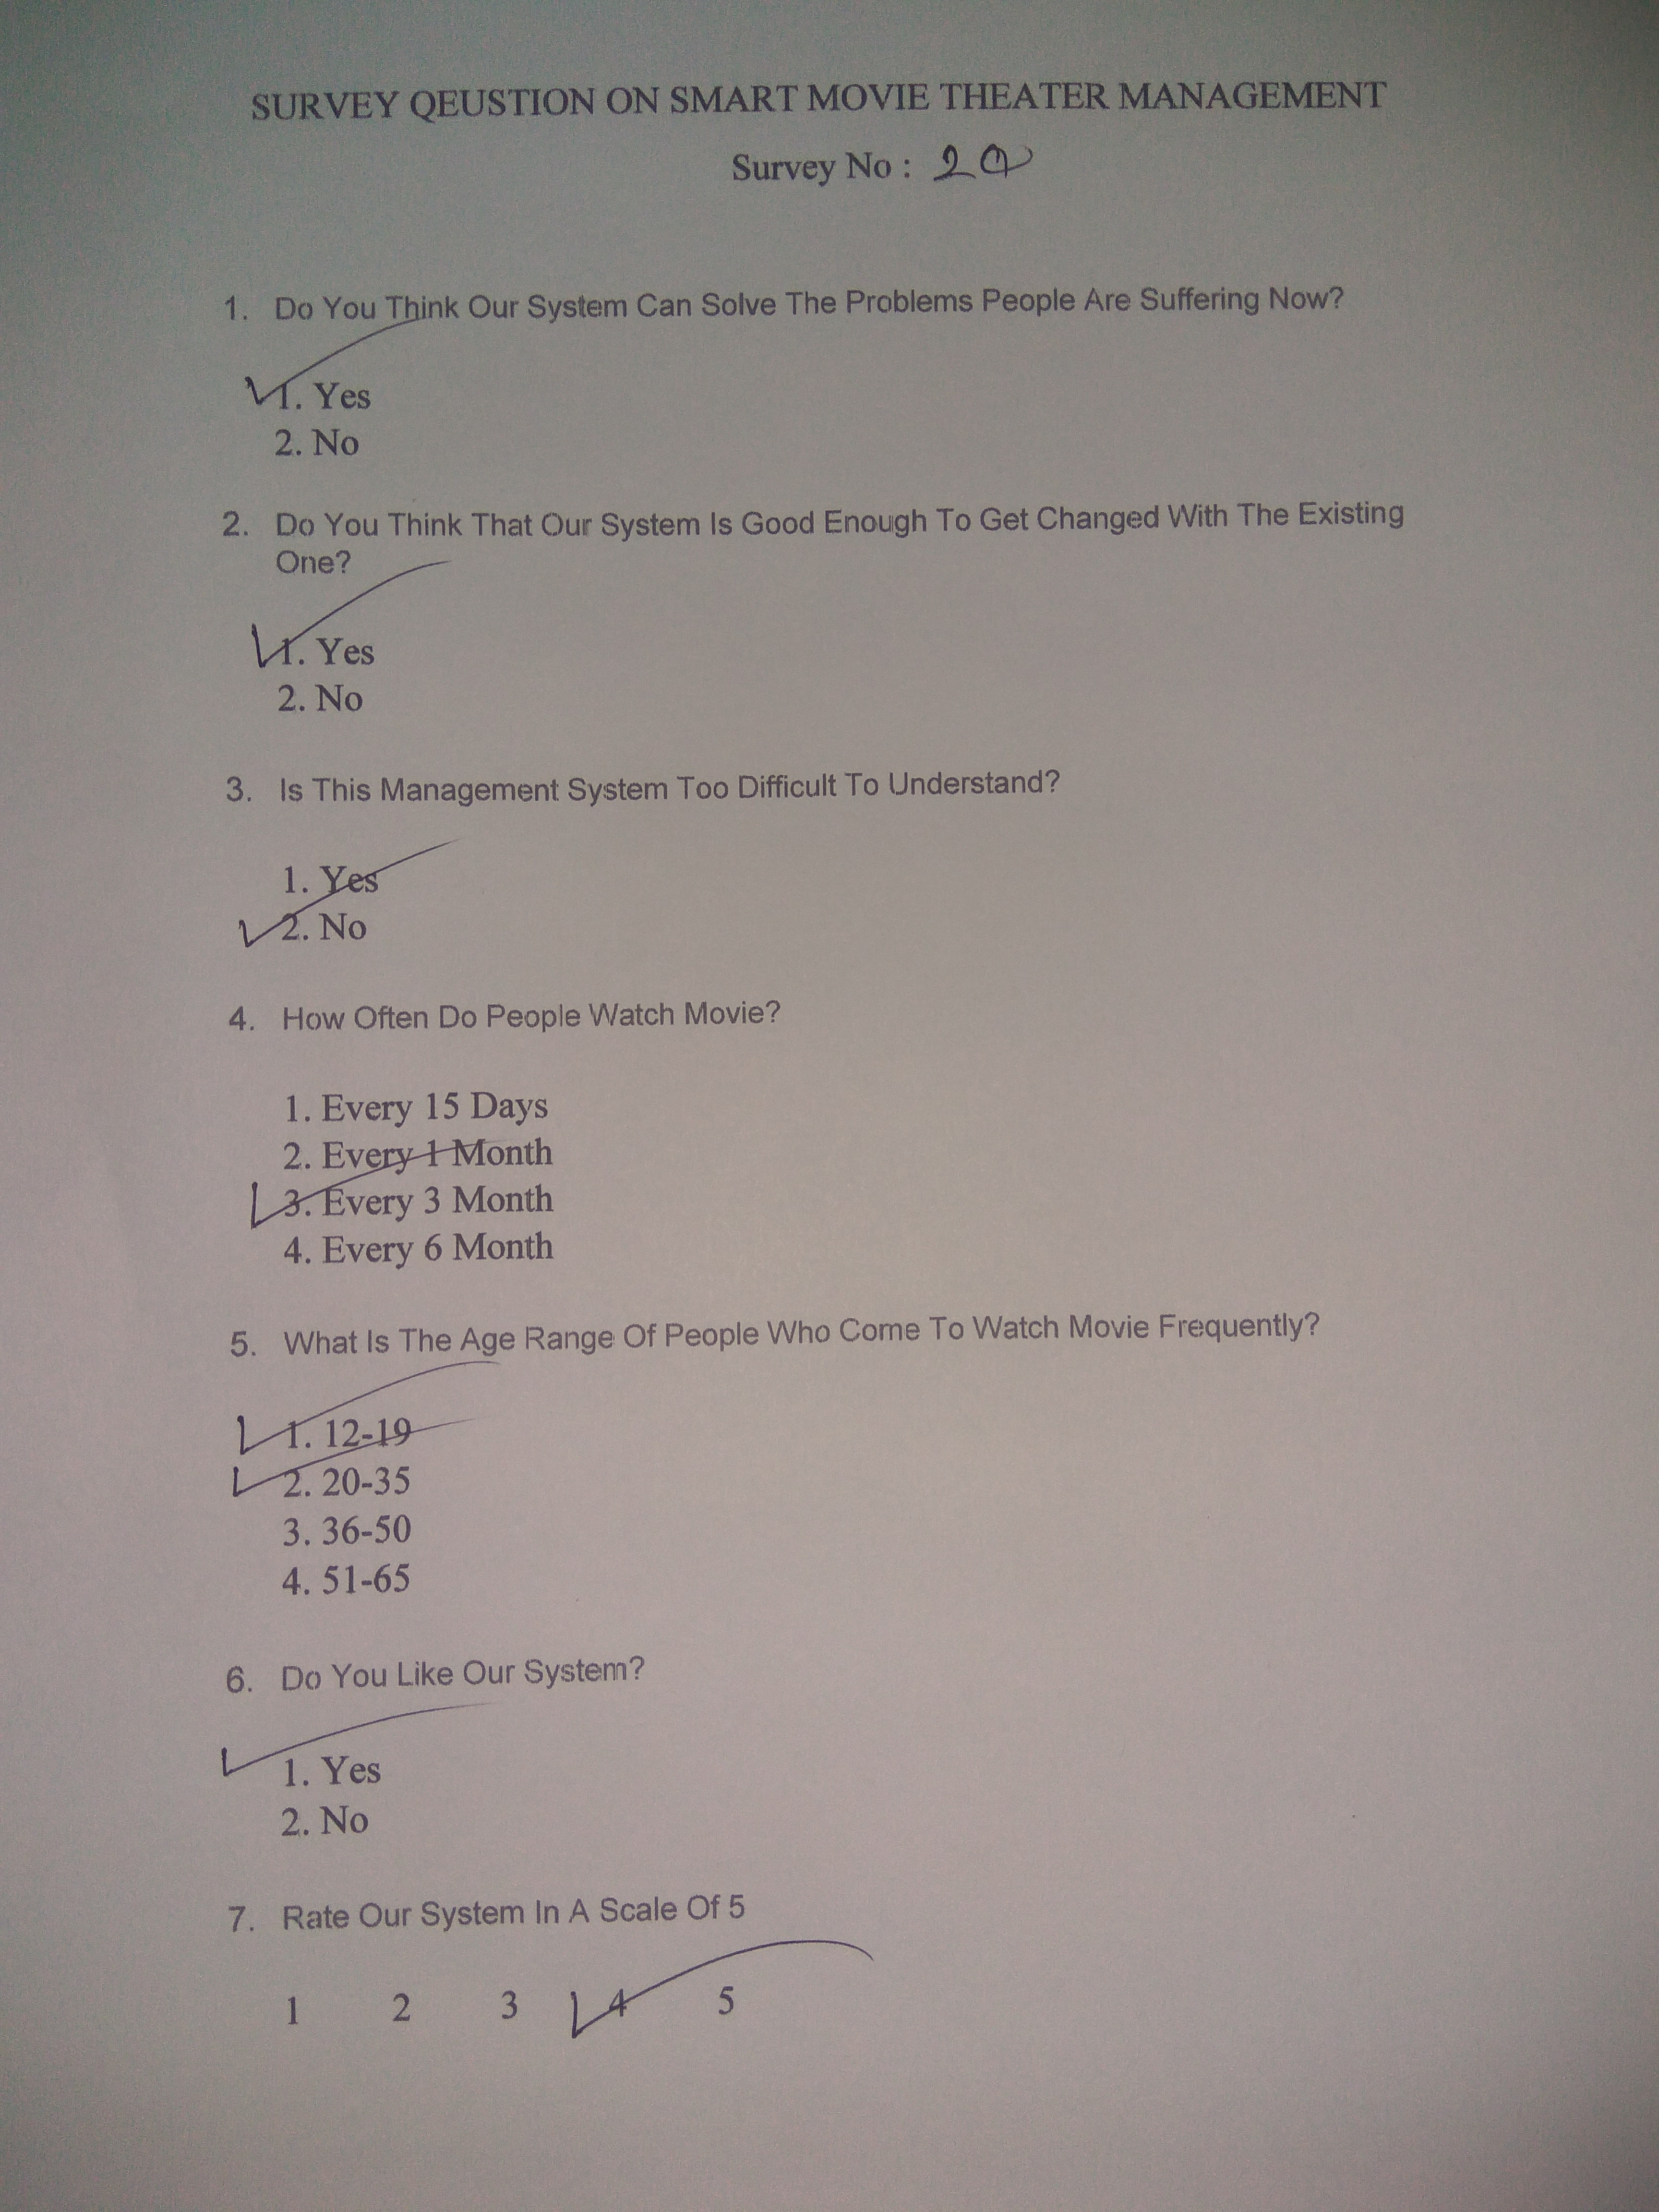 SURVEY QEUSTION ON SMART MOVIE THEATER MANAGEMENT
Survey No :
1. Do You Think Our System Can Solve The Problems People Are Suffering Now?
1. Yes
2. No
2. Do You Think That Our System Is Good Enough To Get Changed With The Existing
One?
1. Yes
2. No
3. Is This Management System Too Difficult To Understand?
1. Yes
2. No
4. How Often Do People Watch Movie?
1. Every 15 Days
2. Every 1 Month
3. Every 3 Month
4. Every 6 Month
5. What Is The Age Range Of People Who Come To Watch Movie Frequently?
1. 12-19
2. 20-35
3. 36-50
4. 51-65
6. Do You Like Our System?
1. Yes
2. No
7. Rate Our System In A Scale Of 5
1 2 3 4 5